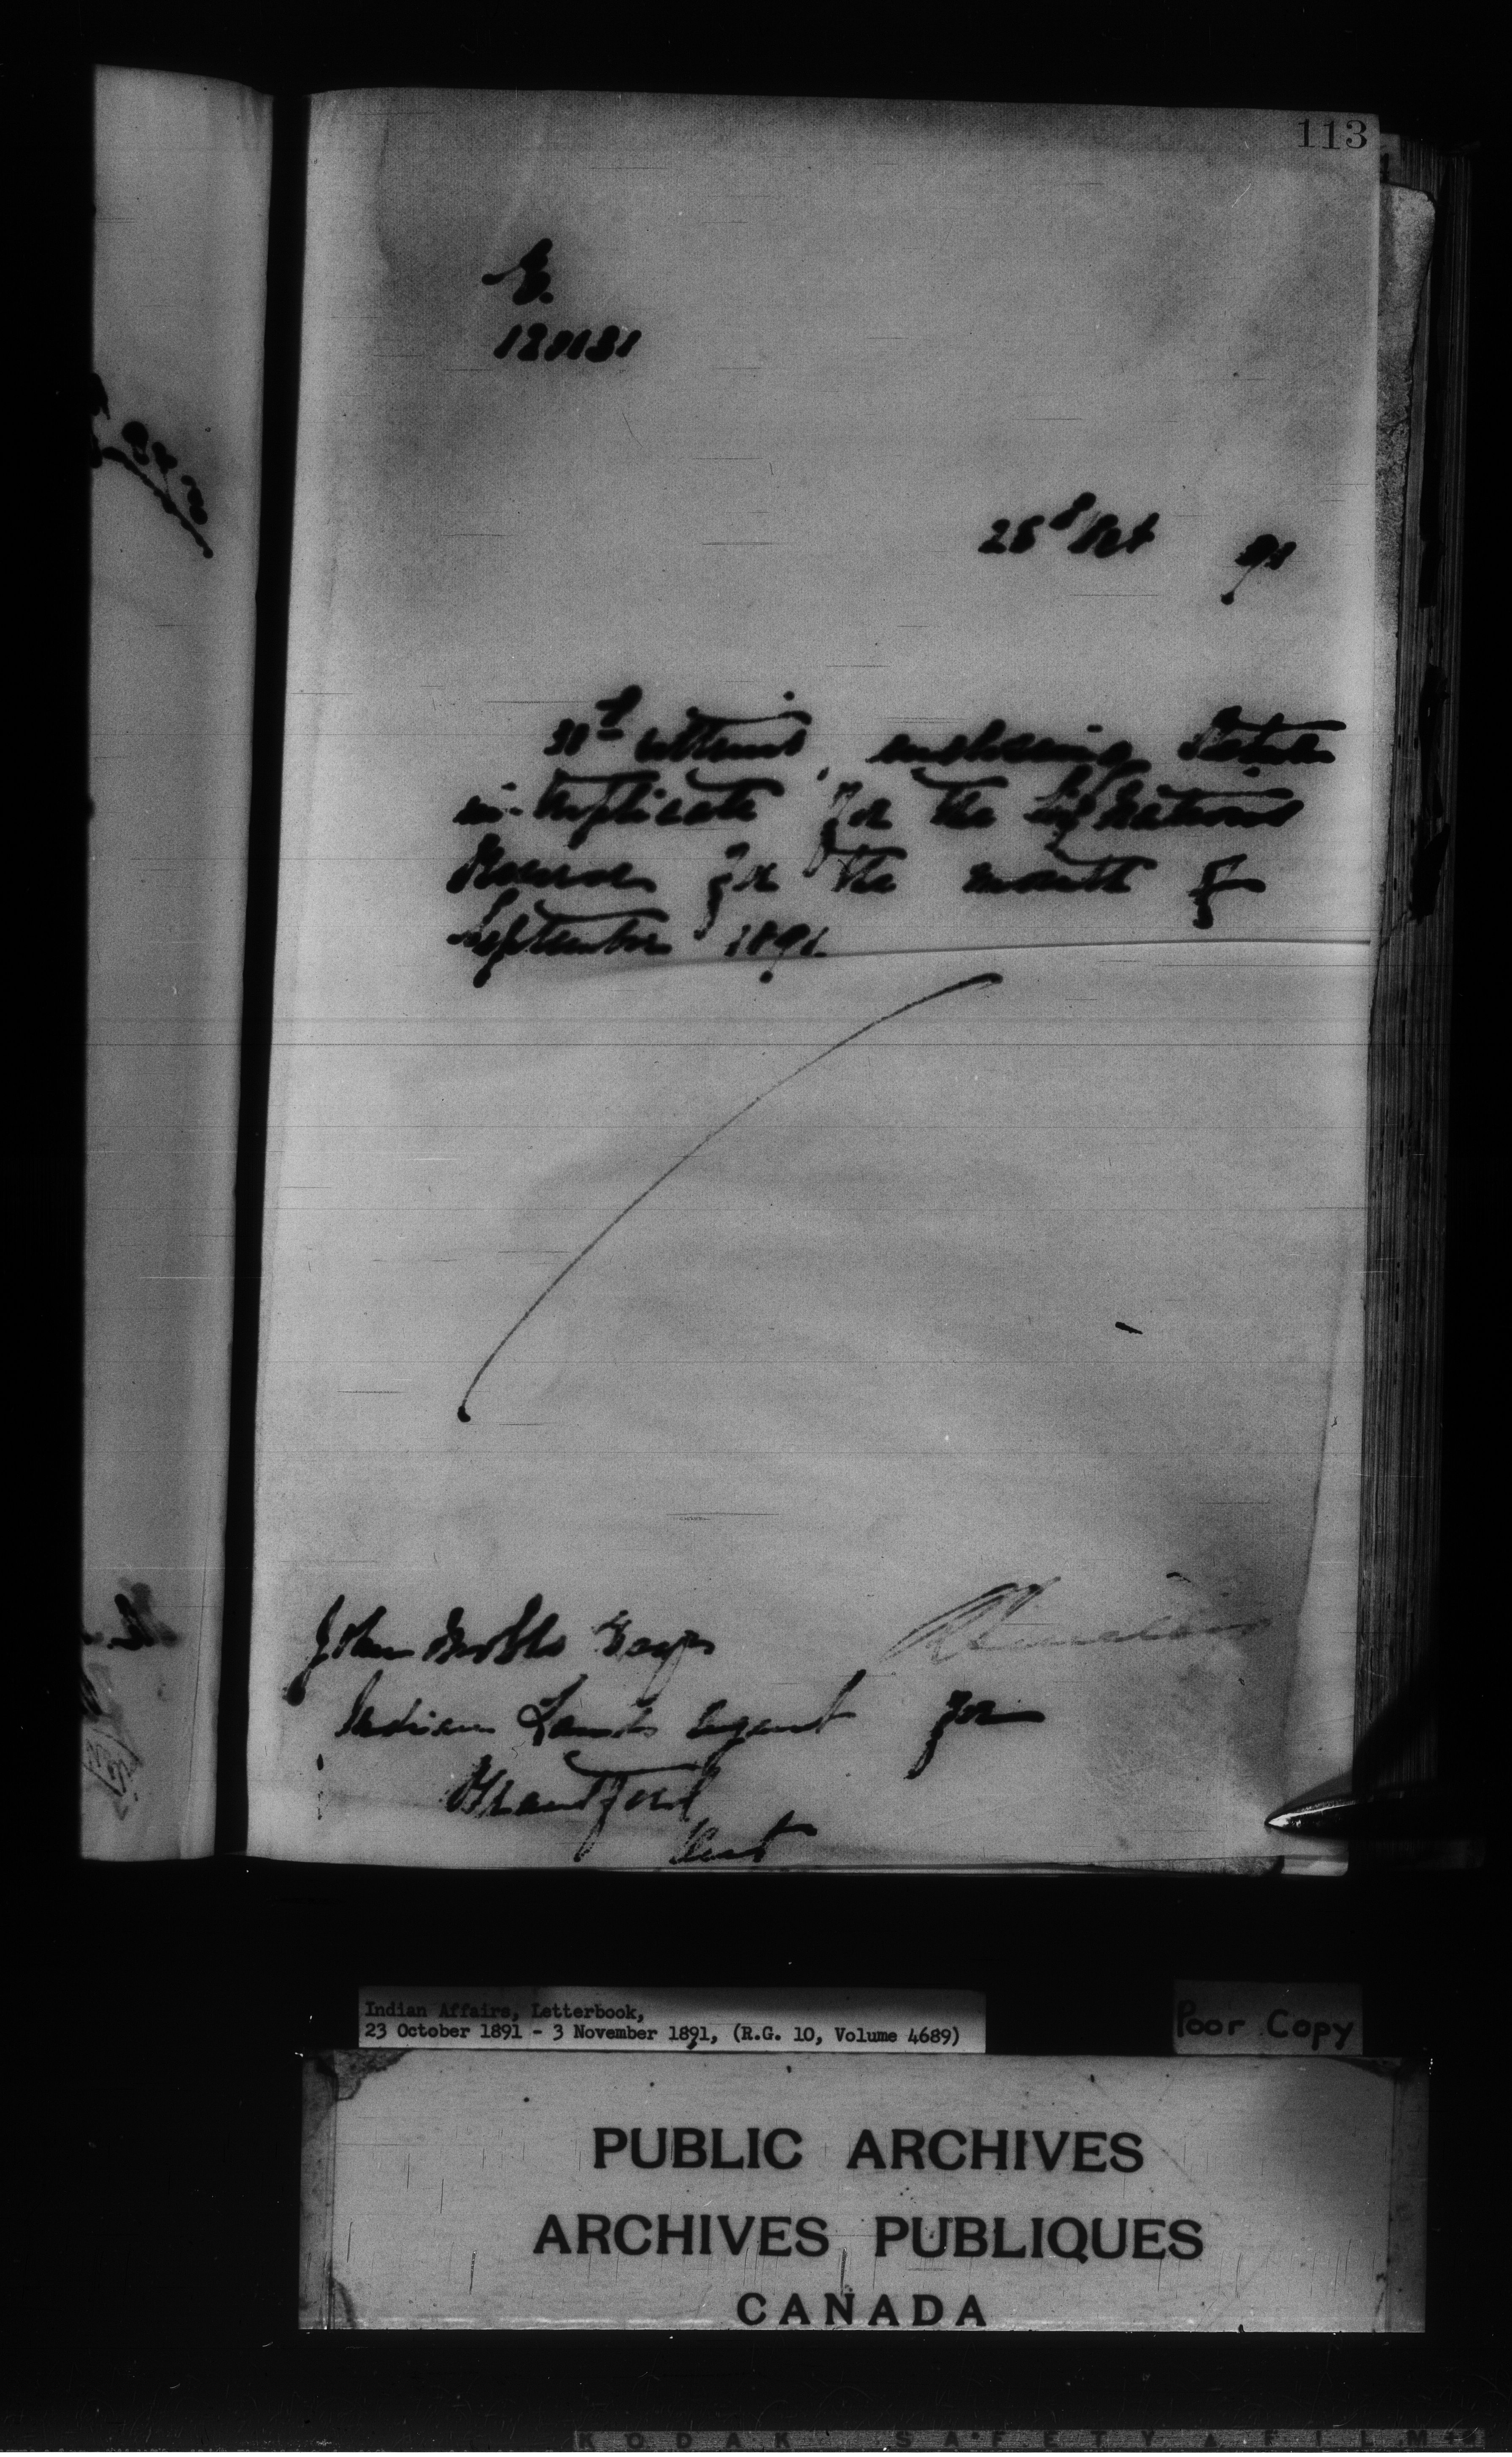 113
120131
28th Oct 91
30th ultimo, enclosing Return
in triplicate for the Six Nations
Reserve for the month of
September 1891.
John Esqr
Indian Lands Agent for
Brantford
Ont
Indian Affairs, Letterbook,
23 October 1891 - 3 November 1891, (R.G. 10, Volume 4689)
Poor Copy
PUBLIC ARCHIVES
ARCHIVES PUBLIQUES
CANADA
KODAK SAFETY FILM